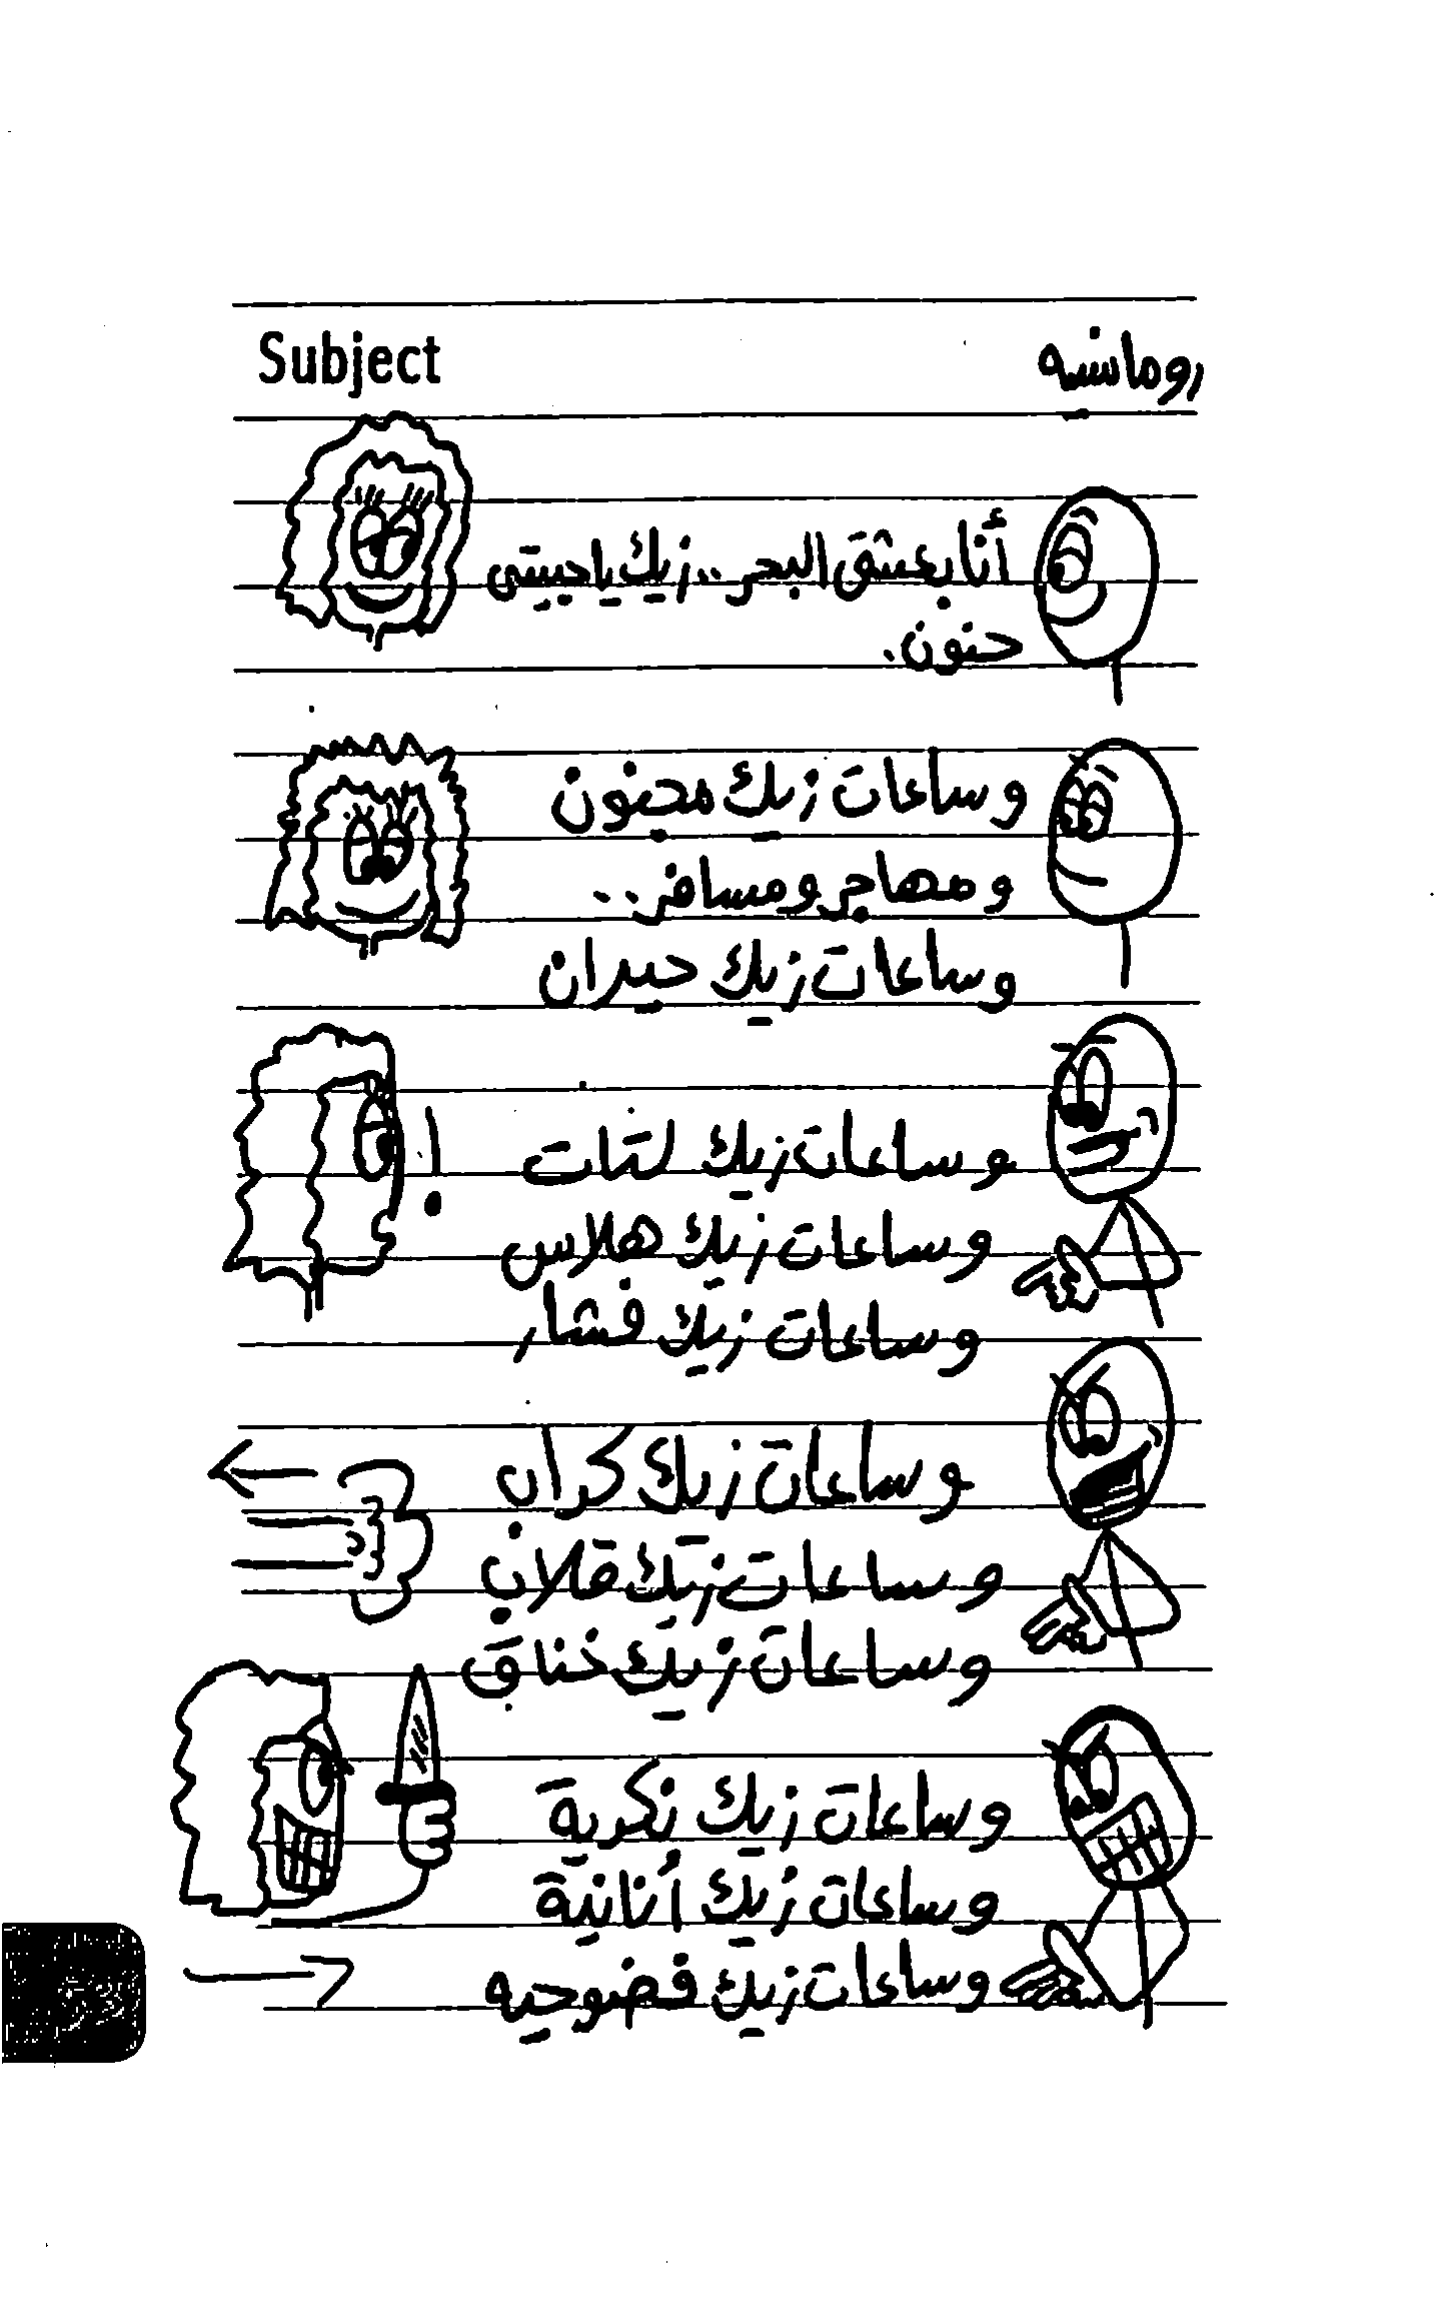 Subject
رومانسيه
أنا بعشق البحر .. زيك يا حبيبتى
حنون.
وساعات زيك مجنون
ومهاجر ومسافر ..
وساعات زيك حيران
وساعات زيك لتات
وساعات زيك هلاس
وساعات زيك فشار
!
وساعات زيك كداب
وساعات زيك قلاب
وساعات زيك خناق
وساعات زيك نكدية
وساعات زيك أنانية
وساعات زيك فضوحيه